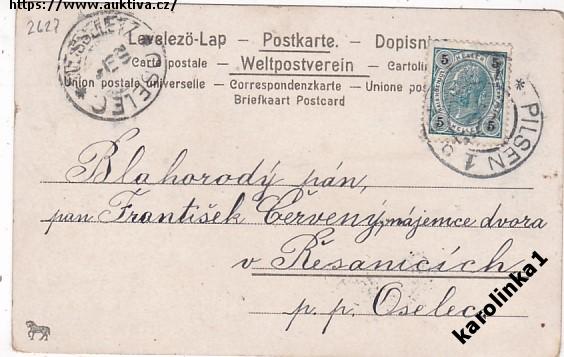 https://www.auktiva.cz/
2627
Levelezö-Lap — Postkarte. — Dopisni
Carte postale — Weltpostverein — Cartolin
Union postale universelle — Correspondenzkarte — Unione pos
Briefkaart Postcard
5 5
5 5
OSELEC
* PILSEN 1
Blahorodý pán,
pan František Červený, nájemce dvora
v Řesanicích
p. p. Oselec
karolinka1